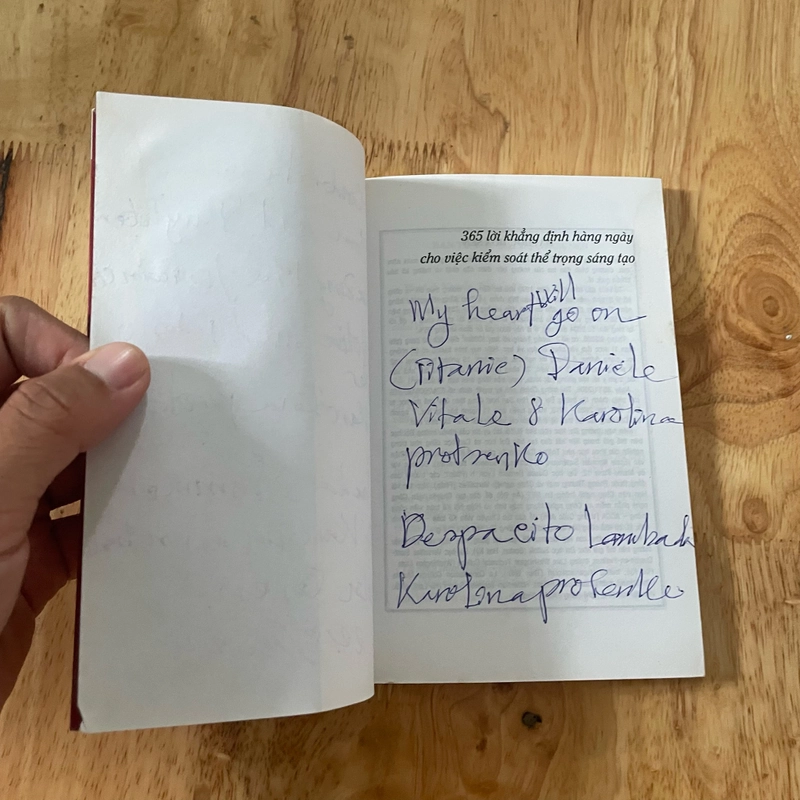 365 lời khẳng định hàng ngày
cho việc kiểm soát thể trọng sáng tạo
My heart will go on
(Titanic) Daniele
Vitale & Karolina
protsenko
Despacito Lambada
Karolina